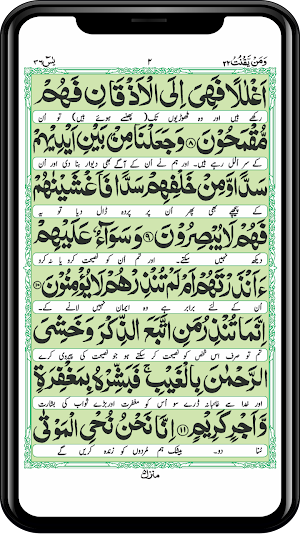 وَمَنْ یَّقْنُتْ ۲۲ ۲ یٰسٓ ۳۶
اَغْلٰلًا فَهِیَ اِلَی الْاَذْقَانِ فَهُمْ
رکھے ہیں اور وہ ٹھوڑیوں تک (پھنسے ہوئے ہیں) تو ان
مُّقْمَحُوْنَ ﴿۸﴾ وَجَعَلْنَا مِنْۢ بَیْنِ اَیْدِیْهِمْ
کے سر الل رہے ہیں۔ اور ہم نے ان کے آگے بھی دیوار بنا دی اور ان
سَدًّا وَّمِنْ خَلْفِهِمْ سَدًّا فَاَغْشَیْنٰهُمْ
کے پیچھے بھی پھر ان پر پردہ ڈال دیا تو یہ
فَهُمْ لَا یُبْصِرُوْنَ ﴿۹﴾ وَسَوَآءٌ عَلَیْهِمْ
دیکھ نہیں سکتے۔ اور تم ان کو نصیحت کرو یا نہ کرو
ءَاَنْذَرْتَهُمْ اَمْ لَمْ تُنْذِرْهُمْ لَا یُؤْمِنُوْنَ ﴿۱۰﴾
ان کے لئے برابر ہے وہ ایمان نہیں لانے کے۔
اِنَّمَا تُنْذِرُ مَنِ اتَّبَعَ الذِّكْرَ وَخَشِیَ
تم تو صرف اس شخص کو نصیحت کر سکتے ہو جو نصیحت کی پیروی کرے
الرَّحْمٰنَ بِالْغَیْبِ ۚ فَبَشِّرْهُ بِمَغْفِرَةٍ
اور خدا سے غائبانہ ڈرے سو اس کو مغفرت اور بڑے ثواب کی بشارت
وَّاَجْرٍ كَرِیْمٍ ﴿۱۱﴾ اِنَّا نَحْنُ نُحْیِ الْمَوْتٰی
سنا دو۔ بیشک ہم مُردوں کو زندہ کریں گے
منزل ۵